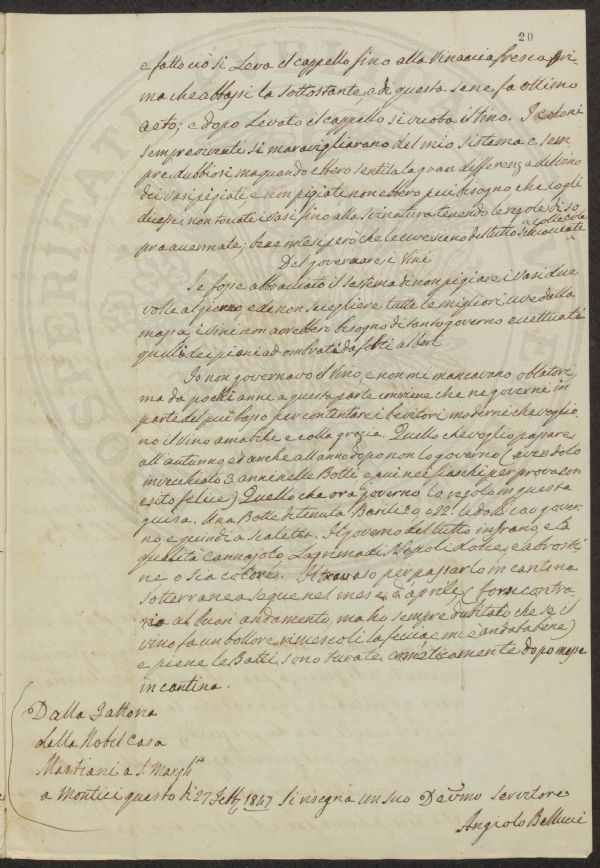 20
e fatto ciò si Leva il cappello fino alla Vinaccia fresca pri-
ma che abbassi la sottostante, e di questa se ne fa ottimo
aceto; e dopo Levato il cappello si svina il Vino. I coloni
sempre si maravigliarono del mio Sistema e sem-
pre dubbiosi, ma quando ebbero sentita la gran differenza di Vino
dei vasi pigiati e non pigiati non ebbero più bisogno che io gli
dicessi: non toccate i vasi fino alla svinatura tenendo le regole di so
pra accennate; bene però che le uve sieno del tutto schiacciate
Del governare i Vini
Se fosse abbracciato il sistema di non pigiare i vasi due
volte al giorno e di non scegliere tutte le migliori uve dalla
massa i vini non avrebbero bisogno di tanto governo eccettuati
quelli dei piani ad ombrati da folti alberi
Io non governavo il Vino e non mi mancavano oblatori,
ma da pochi anni a questa parte conviene che ne governi in
parte del più basso per contentare i bevitori moderni che voglio
no il Vino amabile e colla grazia. Quello che voglio passare
all'autunno ed anche all'anno dopo non lo governo (avendolo
invecchiato 3 anni nelle Botti e qui nei fiaschi per prova con
esito felice) Quello che ora governo lo regolo in questa
guisa. Una Botte di tenuta Barili 20 o 22: le do le uve a gover
no e quindi a scaletta. Il governo del tutto infranto e la
qualità Cannajolo, Lagrima di Napoli dolce, e abrosti
ne o sia colore. Il travaso per passarlo in cantina
sotterranea segue nel mese di aprile, (forse contra
rio al buon andamento, ma ho sempre dubitato che se il
vino fa un bollore rimescoli la feccia e mi è andata bene)
e piene le Botti sono turate ermeticamente dopo messe
in cantina.
Dalla Fattoria
della Nobil Casa
Martiani a S. Margh.ta
a Montici questo dì 27 Febb. 1847 Si rassegna un suo Dev.mo Servitore
Angiolo Bellucci